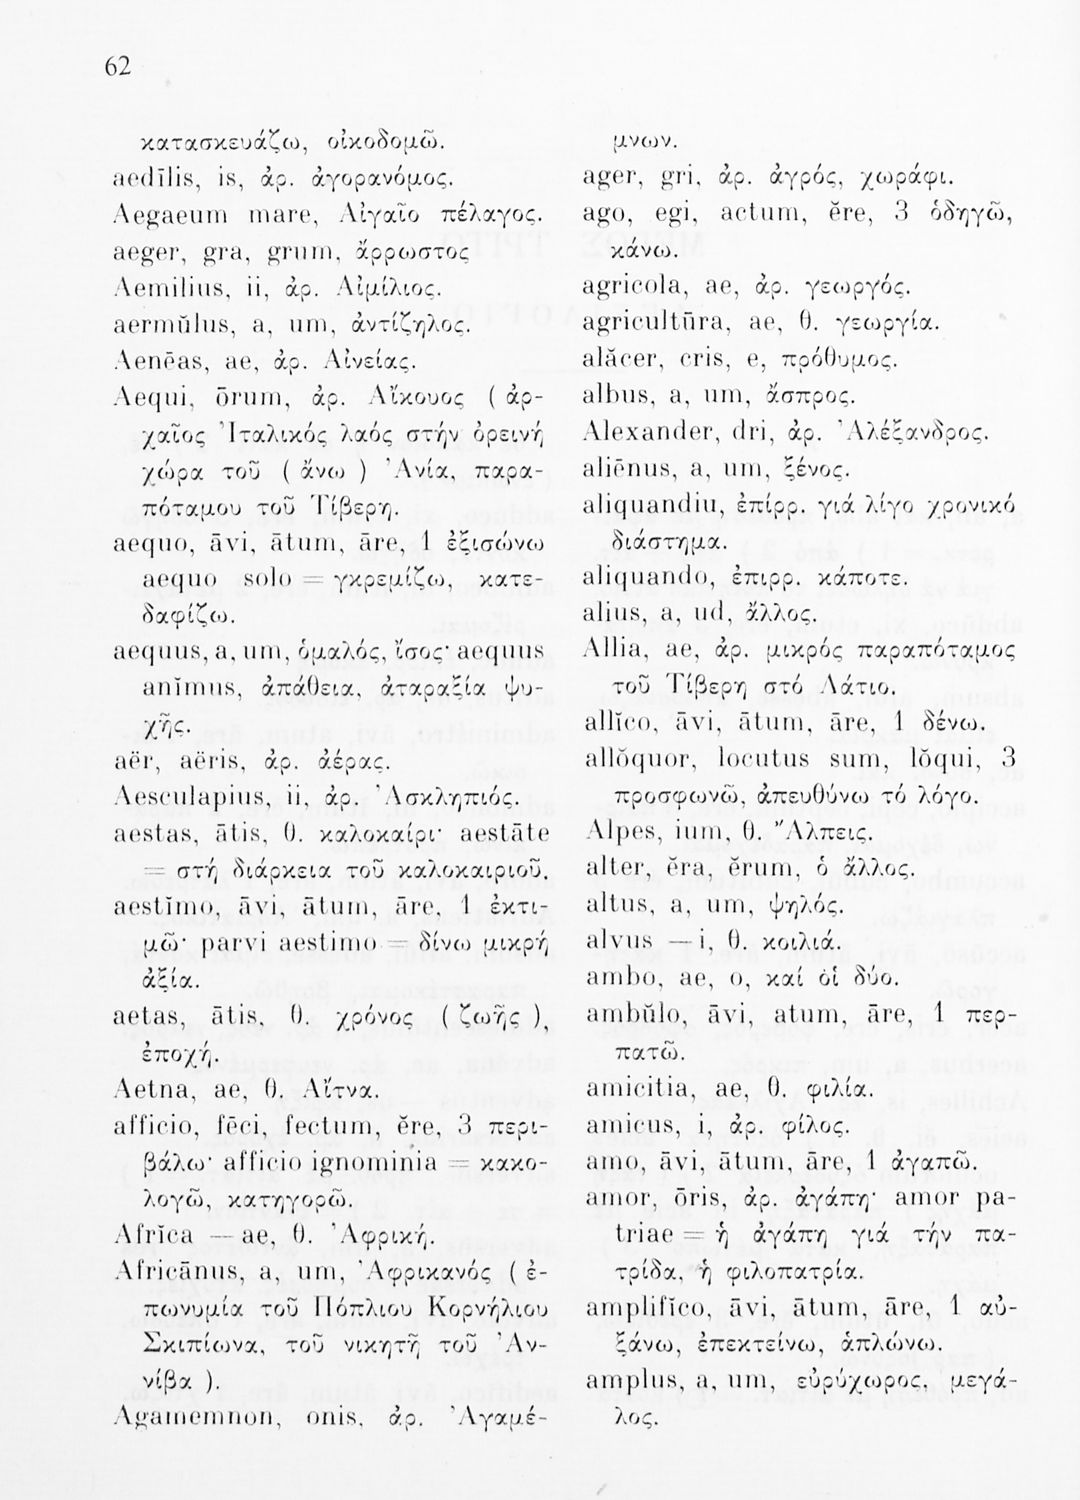 62
κατασκευάζω, οἰκοδομῶ.
aedīlis, is, ἀρ. ἀγορανόμος.
Aegaeum mare, Αἰγαῖο πέλαγος.
aeger, gra, grum, ἄρρωστος
Aemilius, ii, ἀρ. Αἰμίλιος.
aermŭlus, a, um, ἀντίζηλος.
Aenēas, ae, ἀρ. Αἰνείας.
Aequi, ōrum, ἀρ. Αἴκουος ( ἀρ-
χαῖος Ἰταλικός λαός στήν ὀρεινή
χώρα τοῦ ( ἄνω ) Ἀνία, παρα-
πόταμου τοῦ Τίβερη.
aequo, āvi, ātum, āre, 1 ἐξισώνω
aequo solo = γκρεμίζω, κατε-
δαφίζω.
aequus, a, um, ὁμαλός, ἴσος· aequus
anĭmus, ἀπάθεια, ἀταραξία ψυ-
χῆς.
aër, aëris, ἀρ. ἀέρας.
Aesculapius, ii, ἀρ. Ἀσκληπιός.
aestas, ātis, θ. καλοκαίρι· aestāte
= στή διάρκεια τοῦ καλοκαιριοῦ.
aestĭmo, āvi, ātum, āre, 1 ἐκτι-
μῶ· parvi aestimo = δίνω μικρή
ἀξία.
aetas, ātis, θ. χρόνος ( ζωῆς ),
ἐποχή.
Aetna, ae, θ. Αἴτνα.
afficio, fēci, fectum, ĕre, 3 περι-
βάλω· afficio ignominia = κακο-
λογῶ, κατηγορῶ.
Afrĭca — ae, θ. Ἀφρική.
Africānus, a, um, Ἀφρικανός ( ἐ-
πωνυμία τοῦ Πόπλιου Κορνήλιου
Σκιπίωνα, τοῦ νικητῆ τοῦ Ἀν-
νίβα ).
Agamemnon, onis, ἀρ. Ἀγαμέ-
μνων.
ager, gri, ἀρ. ἀγρός, χωράφι.
ago, egi, actum, ĕre, 3 ὁδηγῶ,
κάνω.
agricola, ae, ἀρ. γεωργός.
agricultūra, ae, θ. γεωργία.
alăcer, cris, e, πρόθυμος.
albus, a, um, ἄσπρος.
Alexander, dri, ἀρ. Ἀλέξανδρος.
aliēnus, a, um, ξένος.
aliquandiu, ἐπίρρ. γιά λίγο χρονικό
διάστημα.
aliquando, ἐπιρρ. κάποτε.
alius, a, ud, ἄλλος.
Allia, ae, ἀρ. μικρός παραπόταμος
τοῦ Τίβερη στό Λάτιο.
allĭco, āvi, ātum, āre, 1 δένω.
allŏquor, locutus sum, lŏqui, 3
προσφωνῶ, ἀπευθύνω τό λόγο.
Alpes, ium, θ. Ἄλπεις.
alter, ĕra, ĕrum, ὁ ἄλλος.
altus, a, um, ψηλός.
alvus — i, θ. κοιλιά.
ambo, ae, o, καί οἱ δύο.
ambŭlo, āvi, atum, āre, 1 περ-
πατῶ.
amicitia, ae, θ. φιλία.
amicus, i, ἀρ. φίλος.
amo, āvi, ātum, āre, 1 ἀγαπῶ.
amor, ōris, ἀρ. ἀγάπη· amor pa-
triae = ἡ ἀγάπη γιά τήν πα-
τρίδα, ἡ φιλοπατρία.
amplifĭco, āvi, ātum, āre, 1 αὐ-
ξάνω, ἐπεκτείνω, ἁπλώνω.
amplus, a, um, εὐρύχωρος, μεγά-
λος.